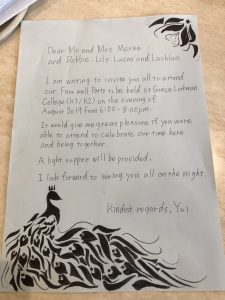 Dear Mr and Mrs Mcrae
and Robbie, Lily, Lucas and Lachlan.
I am writing to invite you all to attend
our Farewell Party to be held at Grace
College (K1/K2) on the evening of
August 2019 from 6:00-8:00pm.
It would give me great pleasure if you were
able to attend to celebrate our time here
and being together.
A light supper will be provided.
I look forward to seeing you all on the night.
Kindest regards,